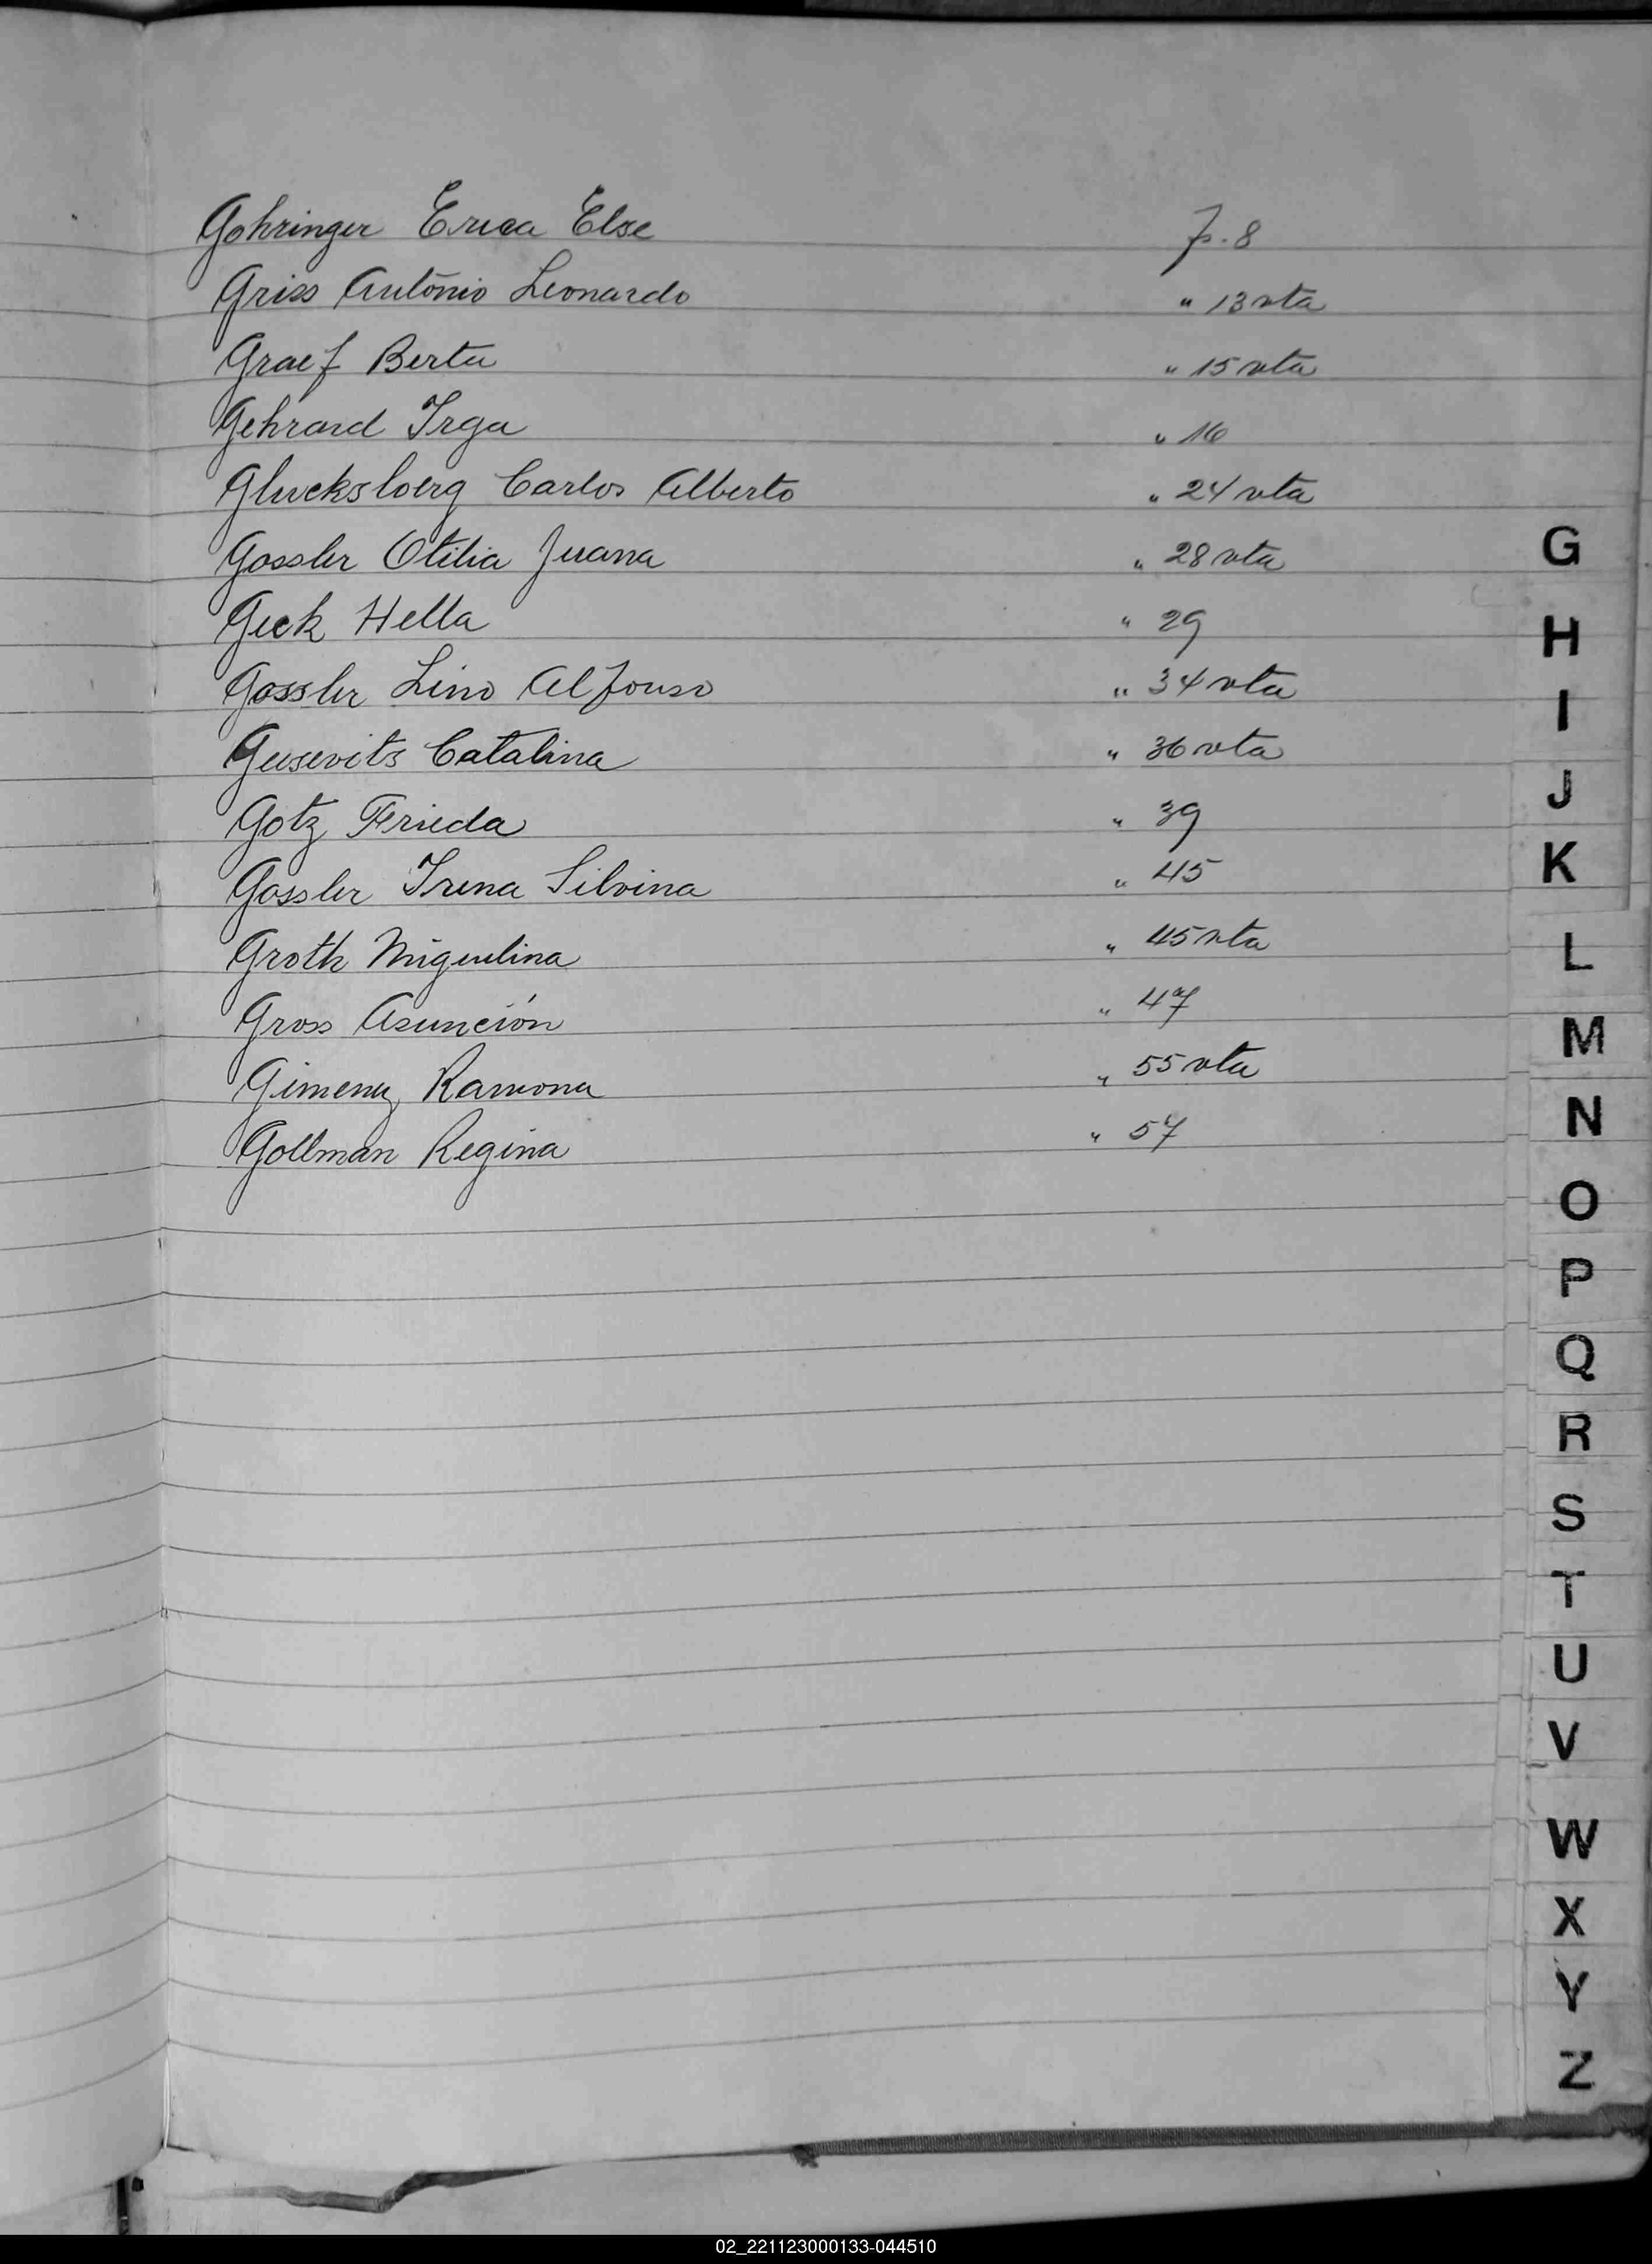 Gohringer Erica Else F. 8
Griss António Leonardo " 13 vta
Graef Berta " 15 vta
Gehrard Irga " 16
Glucksberg Carlos Alberto " 24 vta
Gossler Otilia Juana " 28 vta
Geck Hella " 29
Gossler Lino Alfonso " 34 vta
Geusevits Catalina " 36 vta
Gotz Frieda " 39
Gossler Irena Silvina " 45
Groth Miguelina " 45 vta
Gross Asunción " 47
Gimenez Ramona " 55 vta
Gollman Regina " 57
G
H
I
J
K
L
M
N
O
P
Q
R
S
T
U
V
W
X
Y
Z
02_221123000133-044510